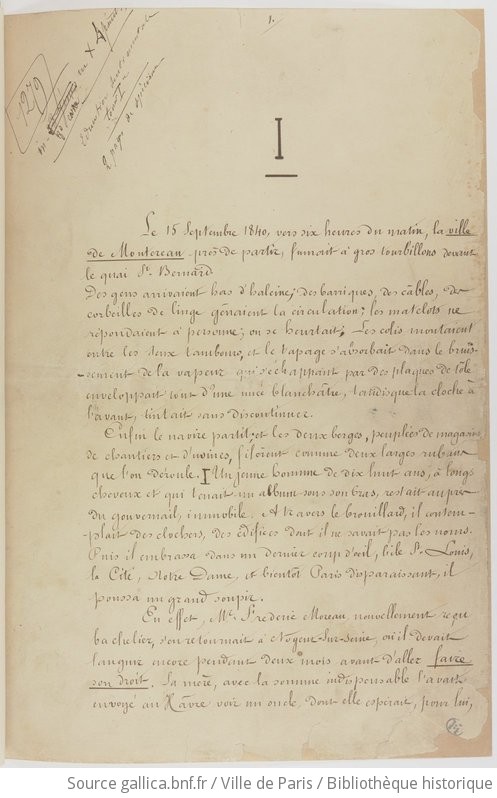 1.
1279
2 pages de
I
Le 15 Septembre 1840, vers six heures du matin, la ville
de Montereau près de partir, fumait à gros tourbillons devant
le quai St. Bernard
Des gens arrivaient hors d'haleine; des barriques, des câbles, des
corbeilles de linge gênaient la circulation; les matelots ne
répondaient à personne; on se heurtait; Les colis montaient
entre les deux tambours, et le tapage s'absorbait dans le bruis-
-sement de la vapeur qui s'échappant par des plaques de tôle
enveloppait tout d'une nuée blanchâtre, tandisque la cloche à
l'avant, tintait sans discontinuer.
Enfin le navire partit; et les deux berges, peuplées de magasins
de chantiers et d'usines, filèrent comme deux larges rubans
que l'on déroule. I Un jeune homme de dix huit ans, à longs
cheveux et qui tenait un album sous son bras, restait auprès
du gouvernail, immobile. A travers le brouillard, il contem-
-plait des clochers, des édifices dont il ne savait pas les noms.
Puis il embrassa dans un dernier coup d'oeil, l'île St. Louis,
la Cité, Notre Dame, et bientôt Paris disparaissant, il
poussa un grand soupir.
En effet, Mr. Frederic Moreau nouvellement reçu
bachelier, s'en retournait à Nogent-Sur-Seine, où il devait
languir encore pendant deux mois avant d'aller faire
son droit. Sa mère, avec la somme indispensable l'avait
envoyé au Hâvre voir un oncle, dont elle espérait, pour lui,
Source gallica.bnf.fr / Ville de Paris / Bibliothèque historique